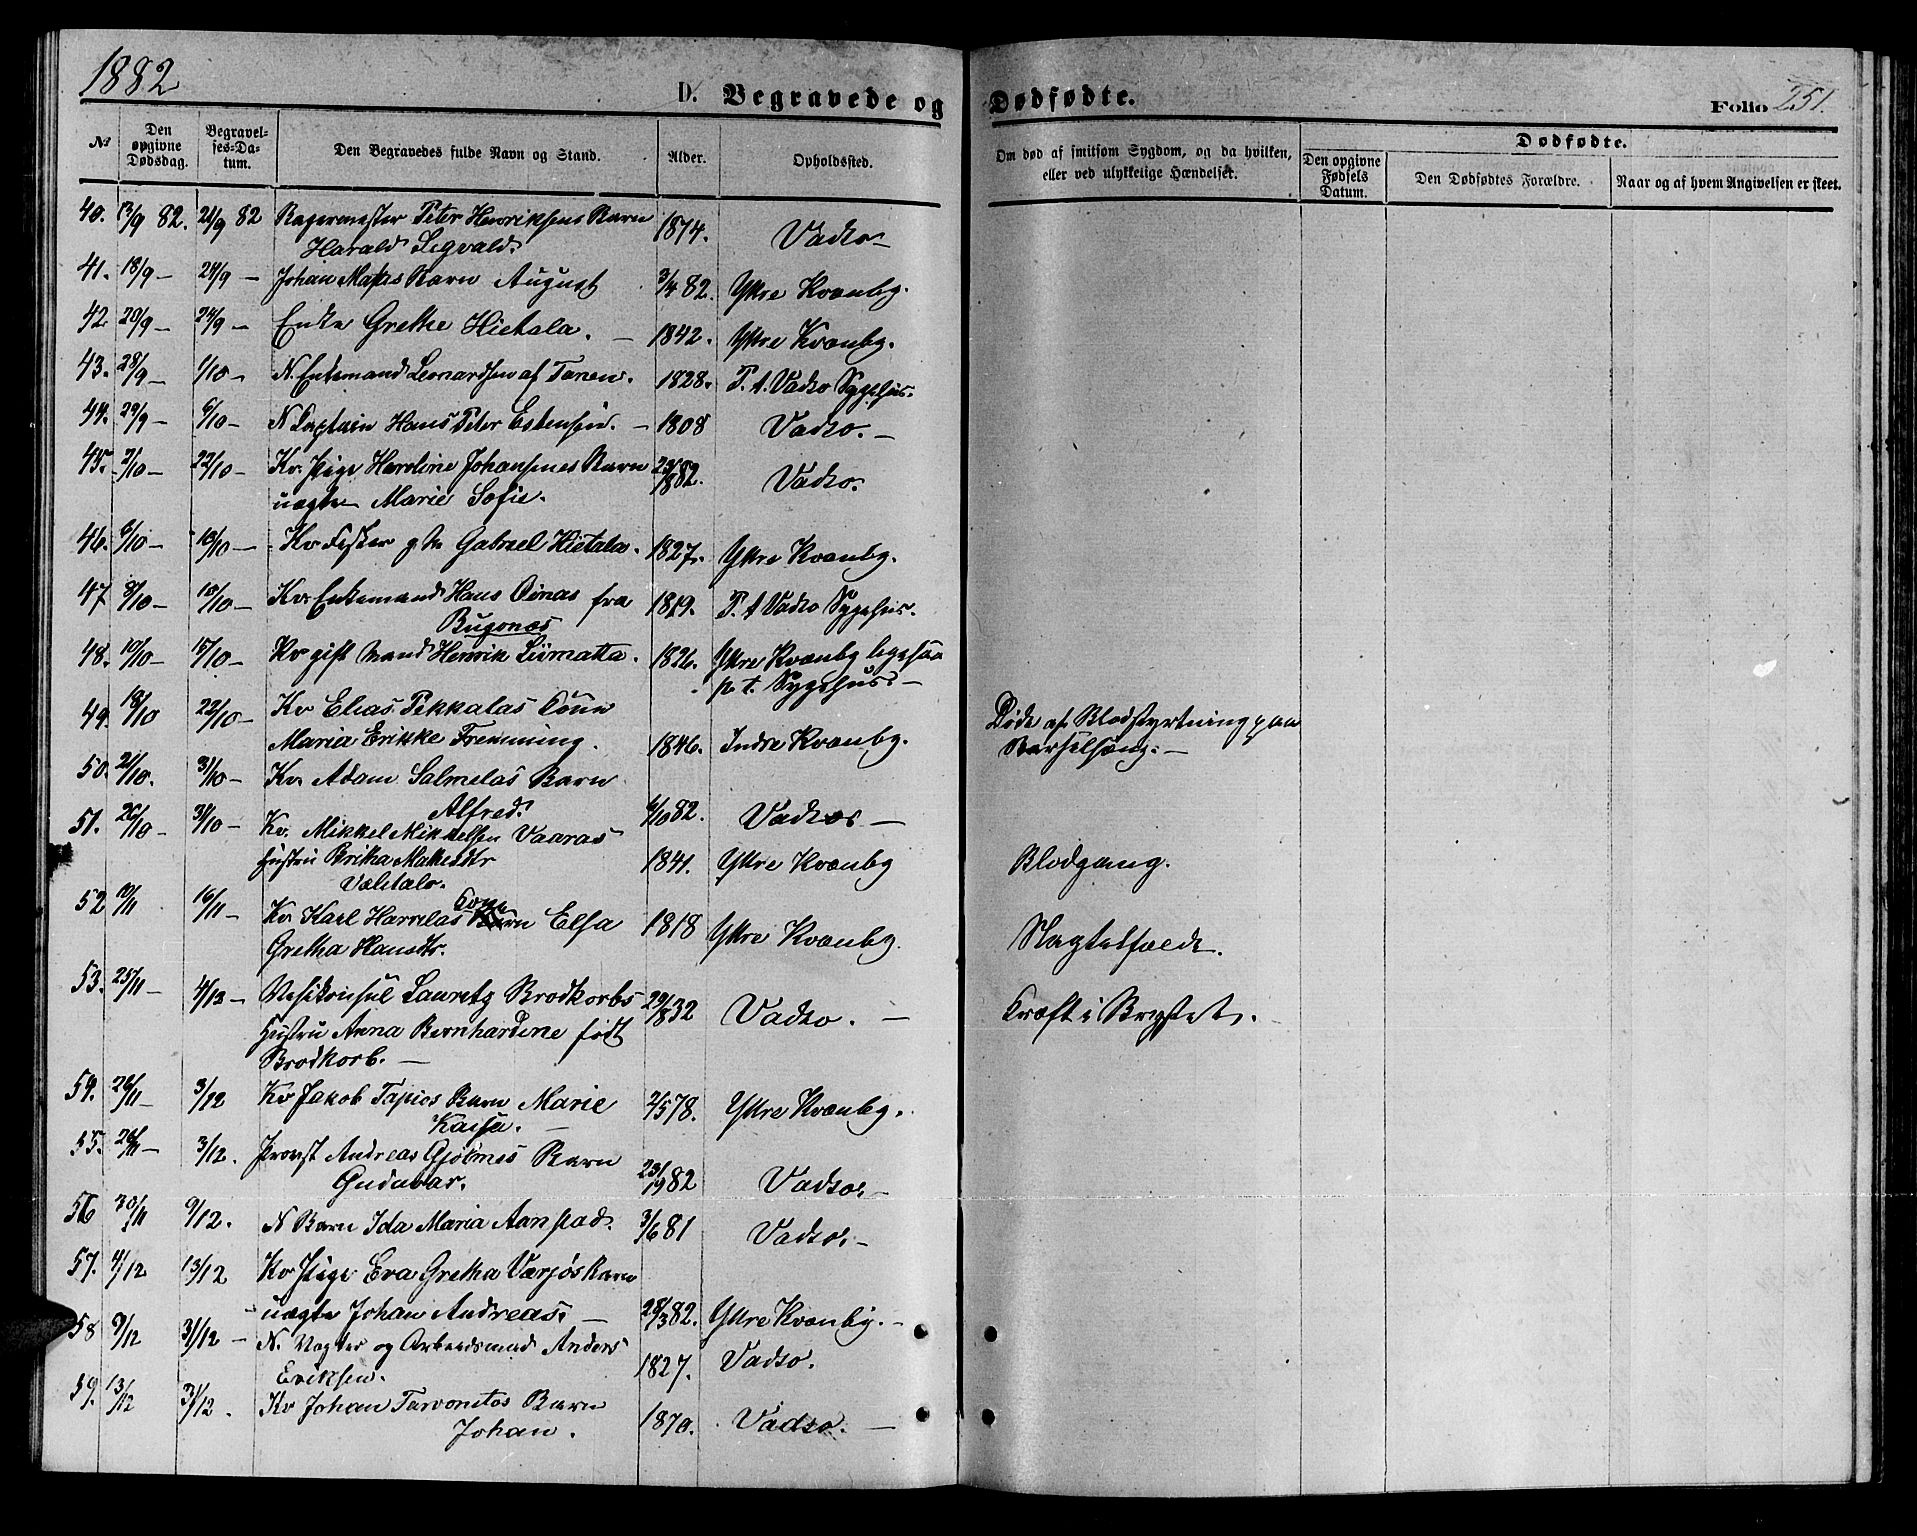 1882
D. Begravede og Dødfødte.
Folio 251.
No
Den opgivne Dødsdag.
Begravelses-Datum.
Den Begravedes fulde Navn og Stand.
Alder.
Opholdssted.
Om død af smitsom Sygdom, og da hvilken, eller ved ulykkelige Hændelser.
Dødfødte.
Den opgivne Fødsels Datum.
Den Dødfødtes Forældre.
Naar og af hvem Angivelsen er skeet.
40. 13/9 82. 24/9 82 Bagermester Peter Henriksens Barn 1874. Vadsø
Harald Sigvald.
41. 18/9 — 24/9 — Johan Matas Barn August 3/4 82. Ytre Kvænby.
42 20/9 — 24/9 — Enke Grethe Hietala. — 1842. Ytre Kvænby.
43. 28/9 — 1/10 — N. Enkemand Leonardsen af Tanen. 1828. P. t. Vadsø Sygehus.
44. 29/9 — 6/10 — N Captain Hans Peter Estensen. — 1808 Vadsø. —
45. 2/10 — 22/10 — Kv. Pige Karoline Johansens Barn Vadsø.
uægte Marie Sofie.
46. 6/10 — 10/10 — Kv Fisker g. m. Gabriel Hietala. 1827. Ytre Kvænby.
47 8/10 — 10/10 — Kv. Enkemand Hans Oinas fra 1819. P. t Vadsø Sygehus.
Bugønæs
48. 10/10 — 15/10 — Kv gift Mand Henrik Liimatta. 1826. Ytre Kvænby ligesaa
p. t. Sygehus. —
49. 18/10 22/10 — Kv Elias Pekkalas Kone Døde af Blodstyrtning paa
Maria Erikke Fremming. 1846. Indre Kvænby. Barselseng. —
50. 21/10. 31/10 — Kv. Adam Salmelas Barn
Alfred. 6/10 82. Vadsø —
51. 26/10 — 31/10 — Kv. Mikkel Mikkelsen Vaaras
Hustru Brita Matsdtr 1841. Ytre Kvænby Blodgang.
Valitalo.
52 10/11 16/11 — Kv Karl Harrelas Kone Elsa 1818 Ytre Kvænby. Slagtilfælde.
Gretha Hansdtr.
53. 25/11 — 4/12 — Vicekonsul Lauritz Brodkorbs 29/1 832 Vadsø. — Kræft i Brystet.
Hustru Anna Bernhardine født
Brodkorb. —
54. 26/11 — 3/12 Kv Jakob Tapios Barn Marie 2/5 78. Ytre Kvænby.
Kaisa. —
55. 26/11 — 3/12. Provst Andreas Gjølmes Barn
Gudvar. 23/9 82 Vadsø. —
56 30/11 9/12. N Barn Ida Maria Aanstad. 3/6 81 Vadsø. —
57. 4/12 13/12 Kv Pige Eva Gretha Værjös Barn
uægte Johan Andreas. — 28/3 82. Ytre Kvænby. —
58 9/12 31/12 — N. Vægter og Arbeidsmand Anders
Eriksen. 1827. Vadsø.
59. 13/12 31/12. Kv Johan Tarvonitos Barn
Johan. 1870. Vadsø. —